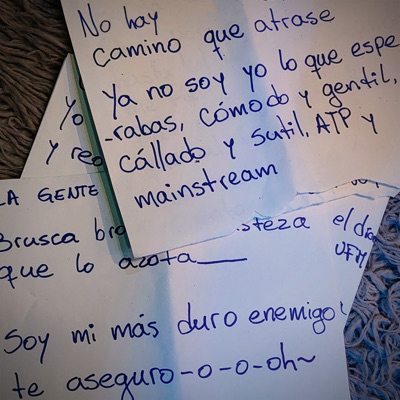 No hay
camino que atrase
Ya no soy yo lo que espe
-rabas, cómodo y gentil,
cállado y sutil, ATP y
mainstream
Yo
y reo
LA GENTE
Brusca bro
steza el día
que lo azota
UFM
Soy mi más duro enemigo!
te aseguro-o-o-oh~